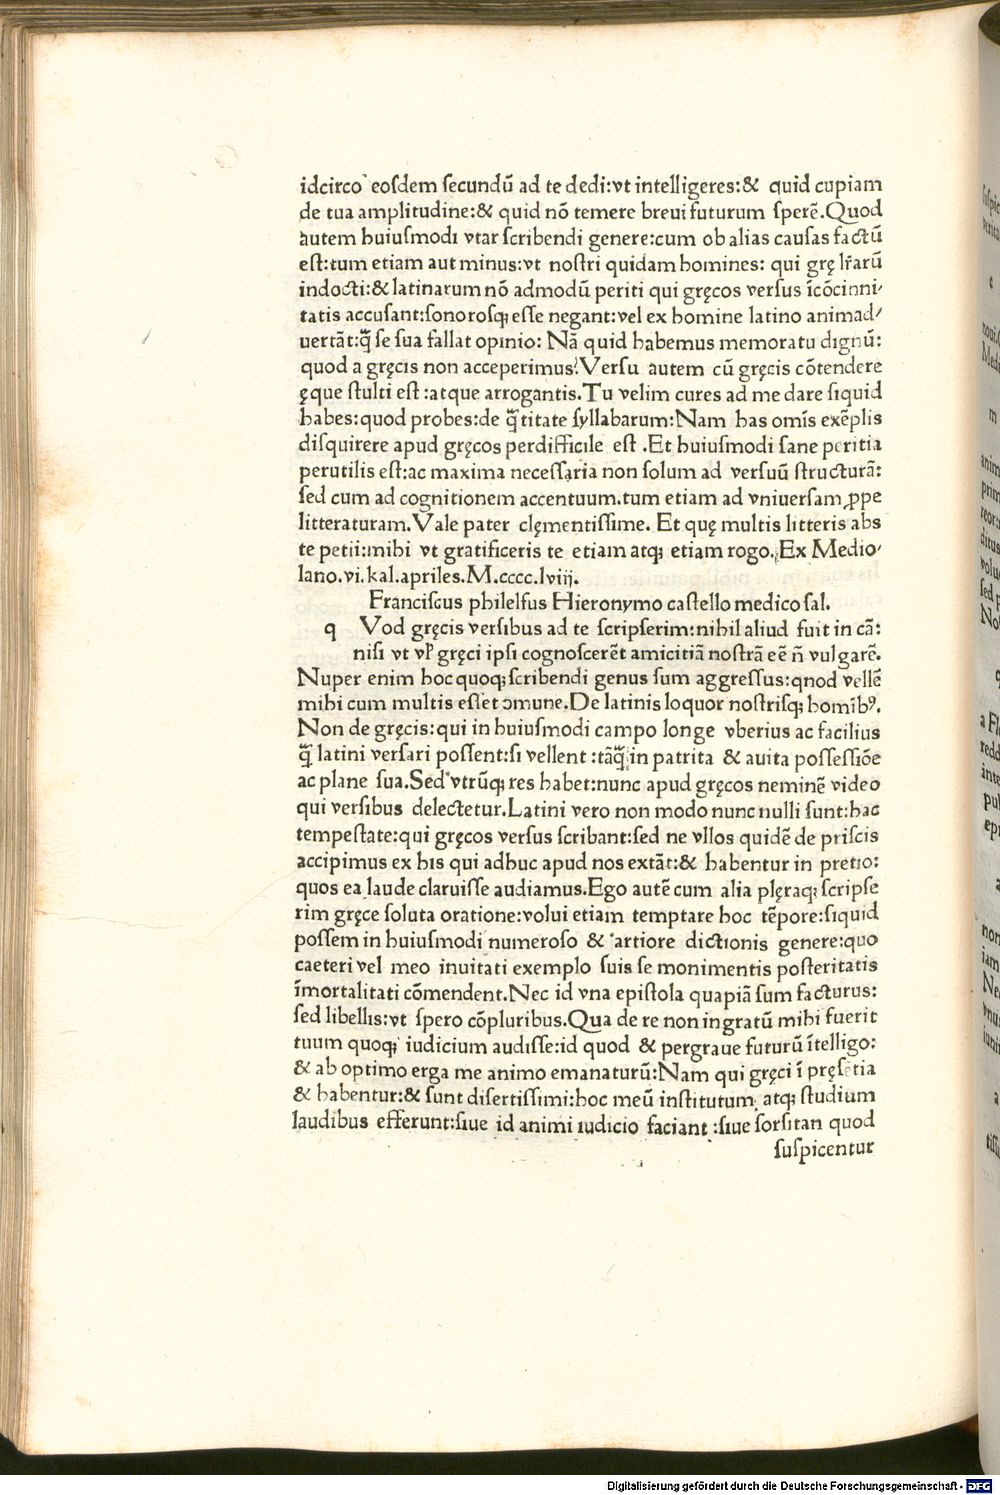 idcirco eosdem secundū ad te dedi:vt intelligeres:& quid cupiam
de tua amplitudine:& quid nō temere breui futurum sperē.Quod
autem huiusmodi vtar scribendi genere:cum ob alias causas factū
est:tum etiam aut minus:vt nostri quidam homines: qui grę lr̄arū
indocti:& latinarum nō admodū periti qui gręcos versus īcōcinni⸗
tatis accusant:sonorosqꝫ esse negant:vel ex homine latino animad⸗
uertāt:q̄̃ se sua fallat opinio: Nā quid habemus memoratu dignū:
quod a gręcis non acceperimus?Versu autem cū gręcis cōtendere
ęque stulti est :atque arrogantis.Tu velim cures ad me dare siquid
habes:quod probes:de q̄̃titate syllabarum:Nam has omīs exēplis
disquirere apud gręcos perdifficile est .Et huiusmodi sane peritia
perutilis est:ac maxima necessaria non solum ad versuū structurā:
sed cum ad cognitionem accentuum.tum etiam ad vniuersam ꝓpe
litteraturam.Vale pater clęmentissime. Et quę multis litteris abs
te petii:mihi vt gratificeris te etiam atqꝫ etiam rogo. Ex Medio⸗
lano.vi.kal.apriles.M.cccc.lviij.
Franciscus philelfus Hieronymo castello medico sal.
q Vod gręcis versibus ad te scripserim:nihil aliud fuit in cā:
nisi vt vl̓ gręci ipsi cognoscerēt amicitiā nostrā eē n̄ vulgarē.
Nuper enim hoc quoqꝫ scribendi genus sum aggressus:qnod vellē
mihi cum multis esset ↄmune.De latinis loquor nostrisqꝫ homībꝰ.
Non de gręcis:qui in huiusmodi campo longe vberius ac facilius
q̄̃ latini versari possent:si vellent :tāq̄̃ in patrita & auita possessiōe
ac plane sua.Sed vtrūqꝫ res habet:nunc apud gręcos neminē video
qui versibus delectetur.Latini vero non modo nunc nulli sunt:hac
tempestate:qui gręcos versus scribant:sed ne vllos quidē de priscis
accipimus ex his qui adhuc apud nos extāt:& habentur in pretio:
quos ea laude claruisse audiamus.Ego autē cum alia plęraqꝫ scripse
rim gręce soluta oratione:volui etiam temptare hoc tēpore:siquid
possem in huiusmodi numeroso & artiore dictionis genere:quo
caeteri vel meo inuitati exemplo suis se monimentis posteritatis
īmortalitati cōmendent.Nec id vna epistola quapiā sum facturus:
sed libellis:vt spero cōpluribus.Qua de re non ingratū mihi fuerit
tuum quoqꝫ iudicium audisse:id quod & pergraue futurū ītelligo:
& ab optimo erga me animo emanaturū:Nam qui gręci ī pręsētia
& habentur:& sunt disertissimi:hoc meū institutum atqꝫ studium
laudibus efferunt:siue id animi iudicio faciant :siue forsitan quod
suspicentur
Digitalisierung gefördert durch die Deutsche Forschungsgemeinschaft - DFG